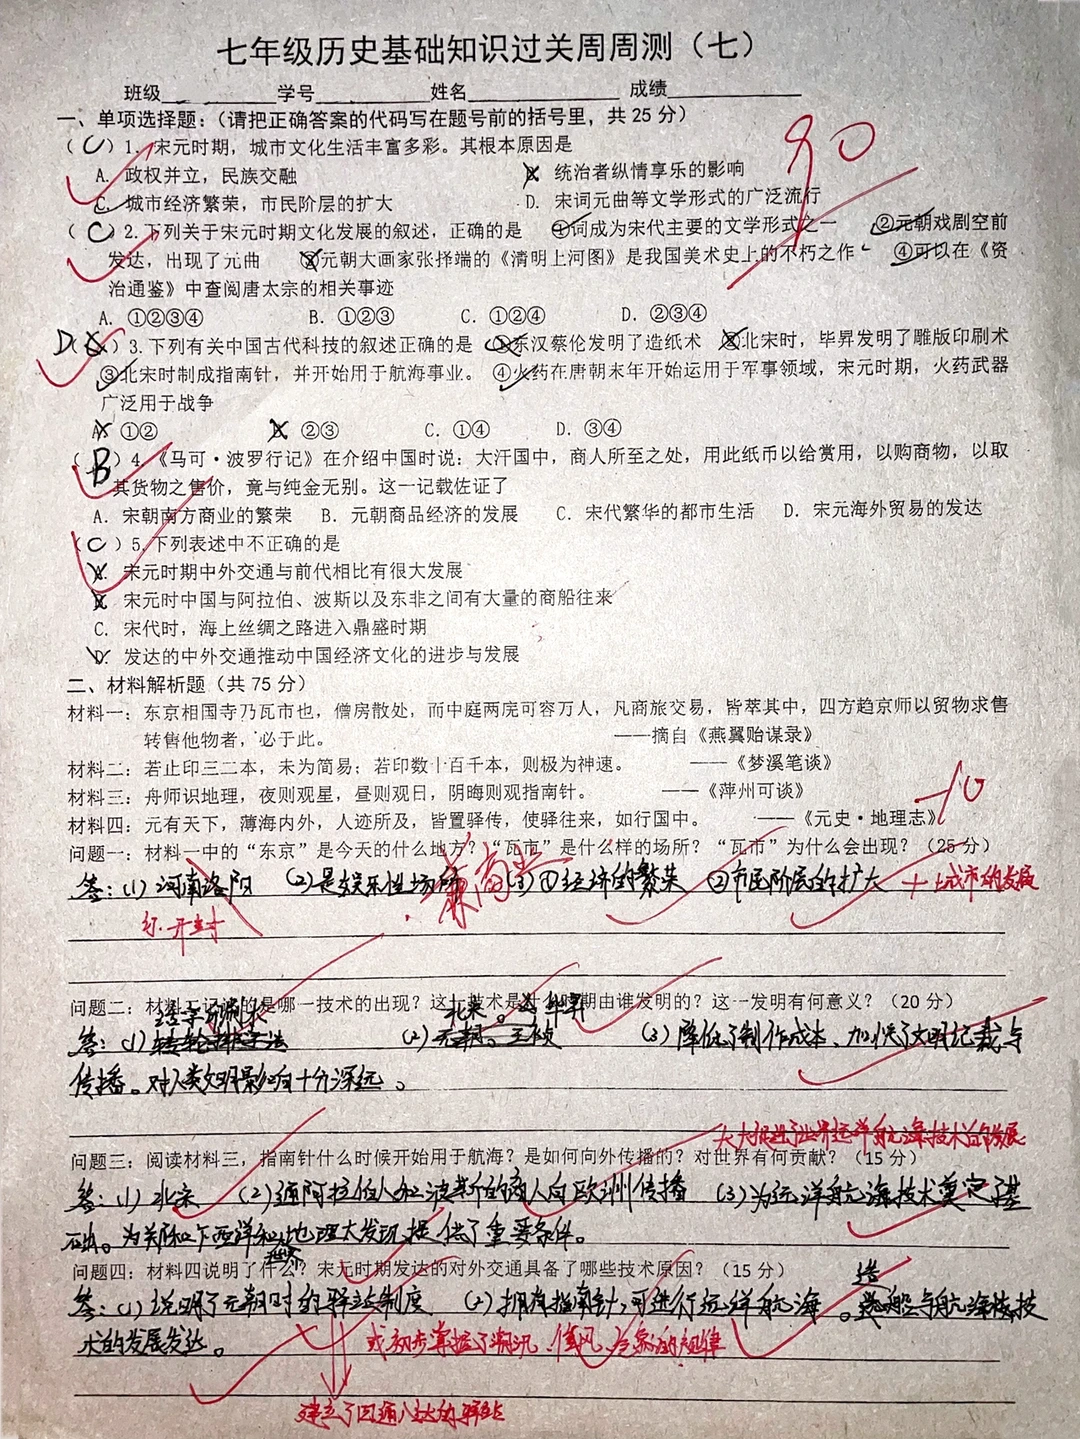 七年级历史基础知识过关周周测（七）
班级 学号 姓名 成绩
一、单项选择题：（请把正确答案的代码写在题号前的括号里，共 25 分）
90
（ C ）1. 宋元时期，城市文化生活丰富多彩。其根本原因是
A. 政权并立，民族交融 B. 统治者纵情享乐的影响
C. 城市经济繁荣，市民阶层的扩大 D. 宋词元曲等文学形式的广泛流行
（ C ）2.下列关于宋元时期文化发展的叙述，正确的是 ①词成为宋代主要的文学形式之一 ②元朝戏剧空前
发达，出现了元曲 ③元朝大画家张择端的《清明上河图》是我国美术史上的不朽之作 ④可以在《资
治通鉴》中查阅唐太宗的相关事迹
A. ①②③④ B. ①②③ C. ①②④ D. ②③④
D（ ）3.下列有关中国古代科技的叙述正确的是 ①东汉蔡伦发明了造纸术 ②北宋时，毕昇发明了雕版印刷术
③北宋时制成指南针，并开始用于航海事业。 ④火药在唐朝末年开始运用于军事领域，宋元时期，火药武器
广泛用于战争
A. ①② B. ②③ C. ①④ D. ③④
（ B ）4.《马可·波罗行记》在介绍中国时说：大汗国中，商人所至之处，用此纸币以给赏用，以购商物，以取
其货物之售价，竟与纯金无别。这一记载佐证了
A. 宋朝南方商业的繁荣 B. 元朝商品经济的发展 C. 宋代繁华的都市生活 D. 宋元海外贸易的发达
（ C ）5.下列表述中不正确的是
A. 宋元时期中外交通与前代相比有很大发展
B. 宋元时中国与阿拉伯、波斯以及东非之间有大量的商船往来
C. 宋代时，海上丝绸之路进入鼎盛时期
D. 发达的中外交通推动中国经济文化的进步与发展
二、材料解析题（共 75 分）
材料一：东京相国寺乃瓦市也，僧房散处，而中庭两庑可容万人，凡商旅交易，皆萃其中，四方趋京师以货物求售
转售他物者，必于此。 ——摘自《燕翼贻谋录》
材料二：若止印三二本，未为简易；若印数十百千本，则极为神速。 ——《梦溪笔谈》
材料三：舟师识地理，夜则观星，昼则观日，阴晦则观指南针。 ——《萍州可谈》
-10
材料四：元有天下，薄海内外，人迹所及，皆置驿传，使驿往来，如行国中。 ——《元史·地理志》
问题一：材料一中的“东京”是今天的什么地方？“瓦市”是什么样的场所？“瓦市”为什么会出现？（25 分）
答：(1) 河南洛阳 (2) 是娱乐性场所 兼商业 (3) ①经济的繁荣 ②市民阶层的扩大 + 城市的发展
开封
问题二：材料二记录的是哪一技术的出现？这一技术是什么时期由谁发明的？这一发明有何意义？（20 分）
活字印刷术 北宋。 毕昇
答：(1) 转轮排字法 (2) 元朝。王祯 (3) 降低了制作成本、加快了文明记载与
传播。对人类文明影响十分深远。
大大促进了世界远洋航海技术的发展
问题三：阅读材料三，指南针什么时候开始用于航海？是如何向外传播的？对世界有何贡献？（15 分）
答：(1) 北宋 (2) 通阿拉伯人和波斯的商人向欧洲传播 (3) 为远洋航海技术奠定了基
础。为关郑和下西洋和地理大发现提供了重要条件。
世界
问题四：材料四说明了什么？宋元时期发达的对外交通具备了哪些技术原因？（15 分）
造
答：(1) 说明了元朝时的驿站制度 (2) 拥有指南针,可进行远洋航海。船与航海技
术的发展发达。
或初步掌握了潮汛、信风、气象的规律
建立了四通八达的驿站